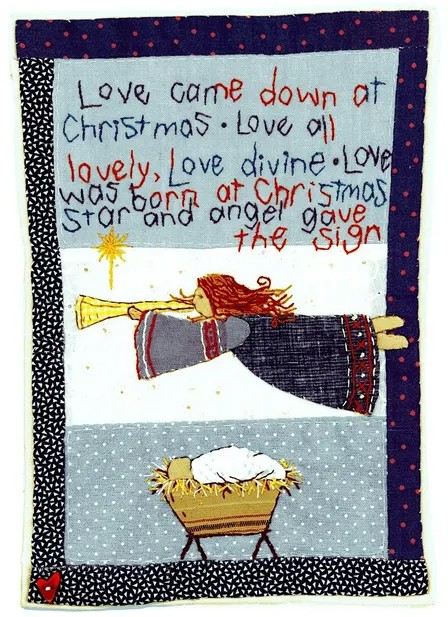 Love came down at
Christmas · Love all
lovely, Love divine · Love
was born at Christmas
Star and angel gave
the sign